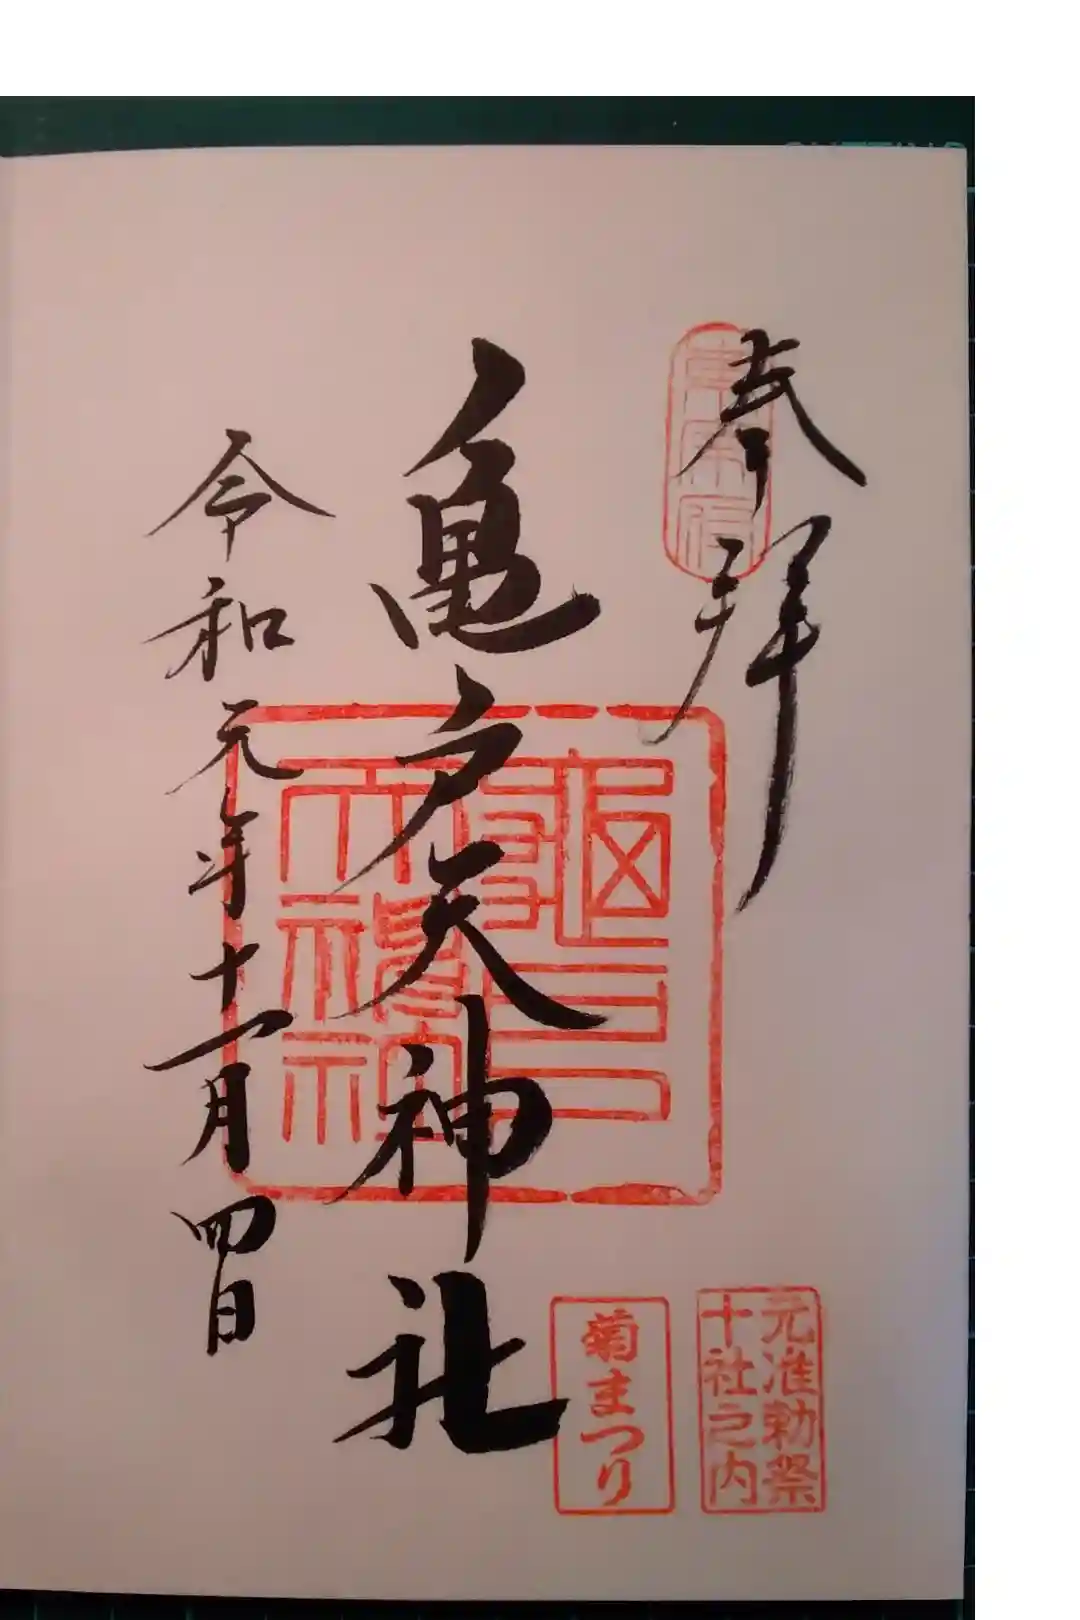 奉拝
亀戸天神社
令和元年十一月四日
元准勅祭
十社之内
菊まつり